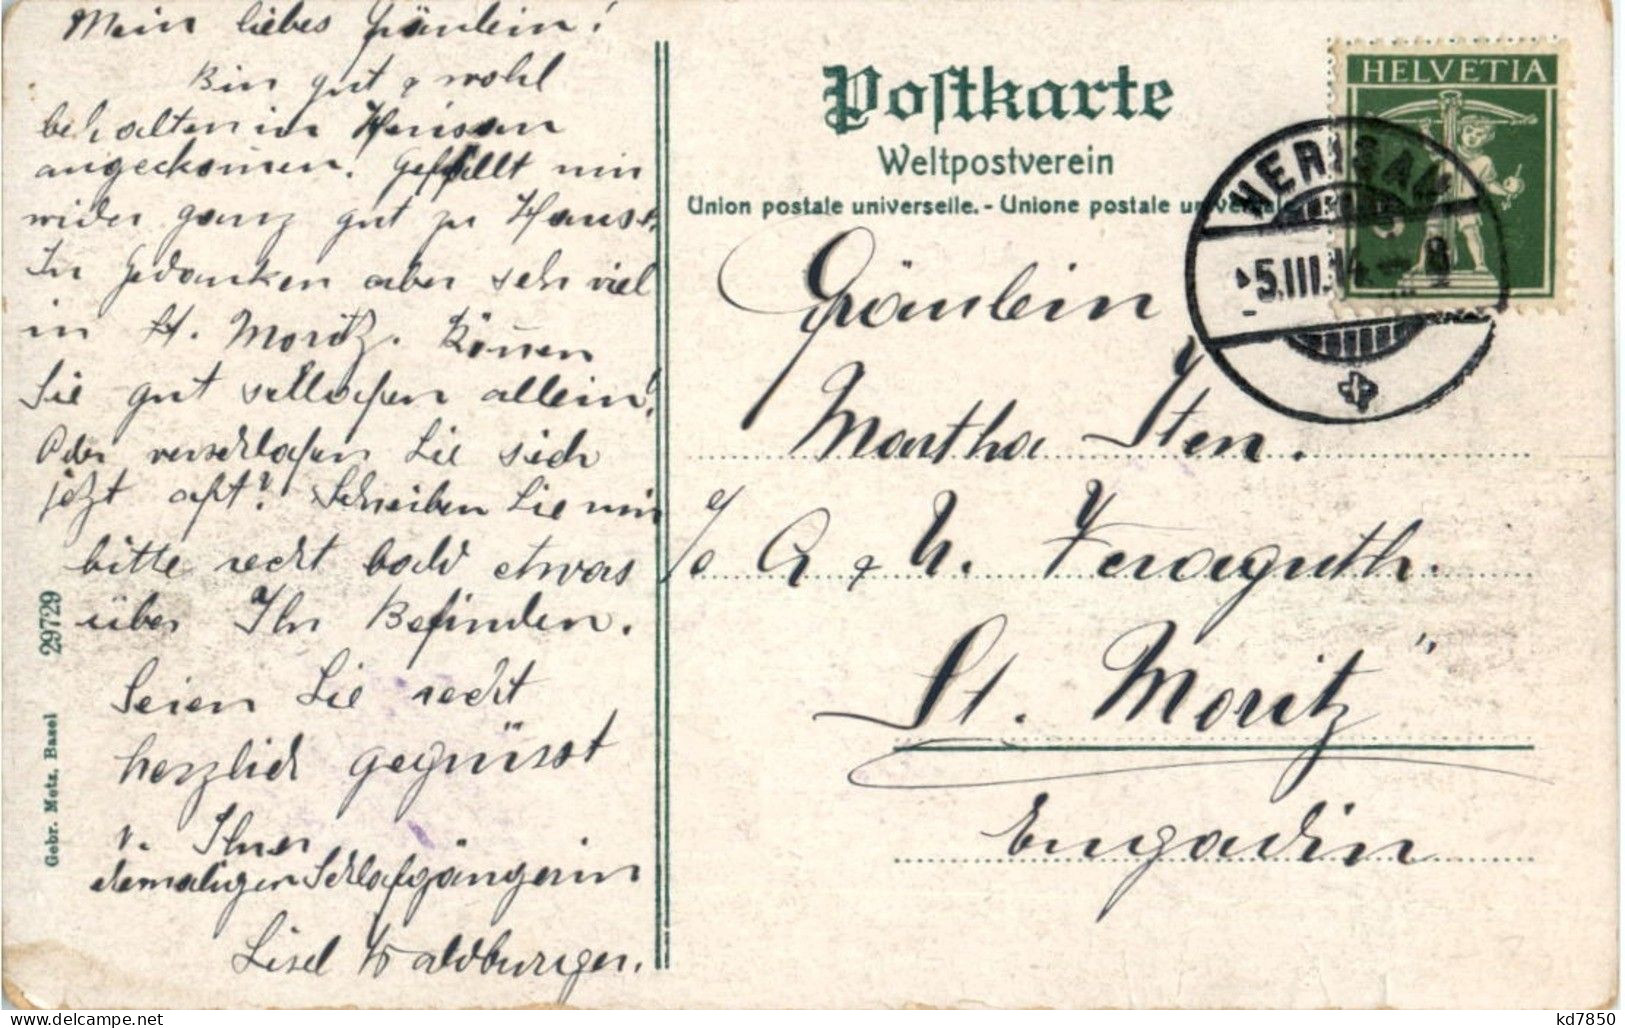 Mein liebes Fräulein!
Bin gut & wohl
behalten in Herisau
angekommen. Gefällt mir
wider ganz gut zu Hause.
In Gedanken aber sehr viel
in St. Moritz. Können
Sie gut schlafen allein!
Oder verschlafen Sie sich
jetzt oft? Schreiben Sie mir
bitte recht bald etwas
über Ihr Befinden.
Seien Sie recht
herzlich gegrüsst
v. Ihrer
ehemaligen Schlafgängerin
Lisel Waldburger.
29729
Gebr. Metz, Basel
Postkarte
Weltpostverein
Union postale universelle. - Unione postale universale
HELVETIA
HERISAU
5.III.14 - 8
Fräulein
Martha Sten.
c/o A & N. Veraguth.
St. Moritz"
Engadin
kd7850